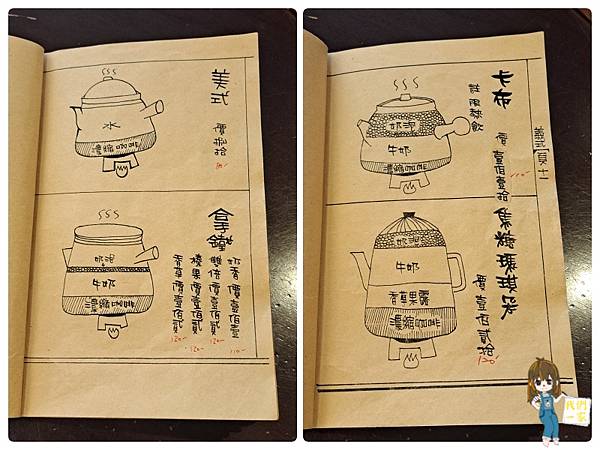 美式
價捌拾
水
濃縮咖啡
拿鐵
奶香 價壹佰壹
110-
雙倍 價壹佰貳
120-
榛果價壹佰貳
120-
香草價壹佰貳
120-
奶泡
牛奶
濃縮咖啡
義式
卡布
註限熱飲
價壹佰壹拾
110-
奶泡
牛奶
濃縮咖啡
焦糖瑪琪朵
價壹佰貳拾
120-
牛奶
香草果露
濃縮咖啡
我們
一家